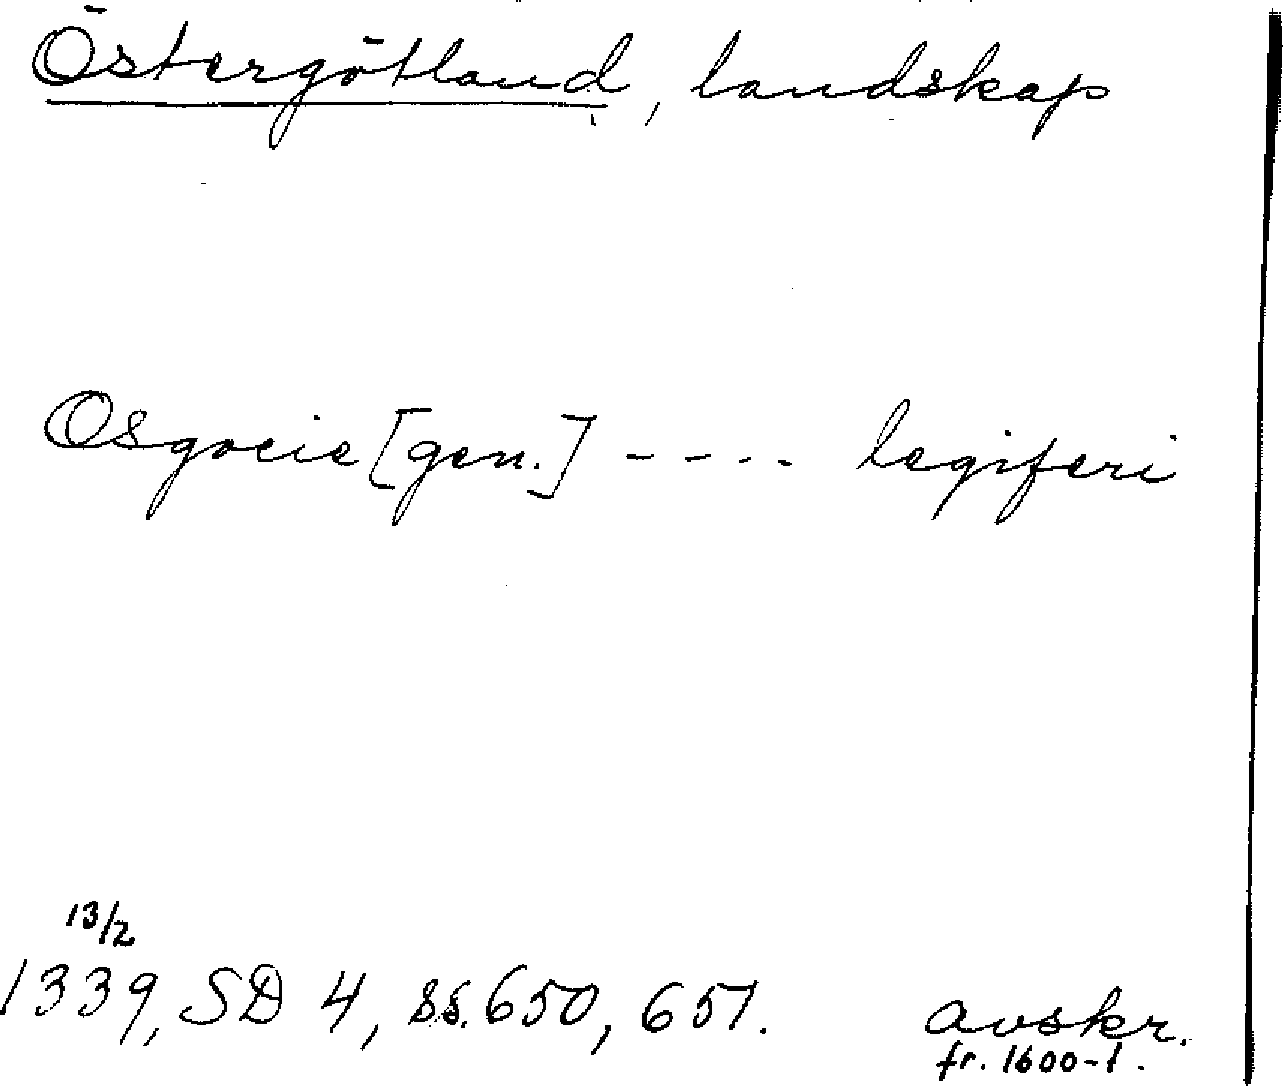 Östergötland, landskap
Osgocie [gen.] ---- legiferi
13/2
1339, SD 4, ss. 650, 651.
avskr.
fr. 1600-t.